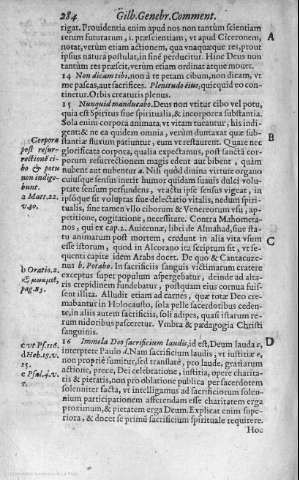 284 Gilb. Genebr. Comment.
rigat. Prouidentia enim apud nos non tantùm scientiam
rerum futurarum, i. præscientiam, vt apud Ciceronem,
notat, verùm etiam actionem, qua vnaquæque res, prout
ipsius natura postulat, in fine perducitur. Hinc Deus non
tantùm res præscit, verùm etiam ordinat, atque mouet.
14 Non dicam tibi, non à te petam cibum, non dicam, vt
me pascas, aut sacrifices. Plenitudo eius, quicquid eo con-
tinetur. Orbis creaturis plenus.
15 Nunquid manducabo. Deus non vtitur cibo vel potu,
quia est spiritus siue spiritualis, & incorporea substantia.
Sola enim corpora animata vt vitam tueantur, his indi-
gent: & ne ea quidem omnia, verùm duntaxat quæ sub-
stantiæ fluxum patiuntur, eum vt restaurent. Quare nec
glorificata corpora, qualia expectamus, post sanctè
corporum resurrectionem magis edent aut bibent, quàm
nubent aut nubentur a. Nisi quòd diuina virtute organo
cuiusque sensus inerit humor quidam suauis dulci volu-
ptate sensum perfundens, vt actu ipse sensus vigeat, in
ipsoque sit voluptas siue delectatio vitalis, nedum spiri-
tualis, sine tamen vllo ciborum & Venereorum vsu, ap-
petitione, cogitatione, necessitate. Contra Mahometa-
nos, qui ex cap. 2. Auicennæ, libri de Almahad, siue sta-
tu animarum post mortem, credunt in alia vita vsum
esse istorum, quòd in Alcorano ita scriptum sit, vt se-
quenti capite idem Arabs docet. De quo & Cantacuze-
nus b. Potabo. In sacrificiis sanguis victimarum cratere
exceptus super populum aspergebatur, deinde ad alta-
ris crepidinem fundebatur, postquam eius cornua fuis-
sent illita. Alludit etiam ad carnes, quæ totæ Deo cre-
mabantur in Holocaustis, sola pelle sacerdotibus ceden-
te, in aliis autem sacrificiis, soli adipes, quasi istarum re-
rum nidoribus pasceretur. Vmbra & pædagogia Christi
sanguinis.
16 Immola Deo sacrificium laudis, id est, Deum lauda c,
interprete Paulo d. Nam sacrificium laudis, vt iustitiæ e,
non propriè sumitur, sed translatè, pro laude, gratiarum
actione, prece, Dei celebratione, iustitia, opere charita-
tis & pietatis, non pro oblatione publica per sacerdotem
solenniter facta, vt intelligamus ad sacrificiorum solen-
nium participationem afferendam esse charitatem erga
proximum, & pietatem erga Deum. Explicat enim supe-
riora, & docet se primò sacrificium spirituale requirere.
Hoc
A
B
C
D
Corpora
post resur-
rectionē ci-
bo & potu
non indige-
bunt.
a Matt. 22.
v. 40.
b Oratio. 2.
pag. 83.
d Heb. 13. v.
15.
e Psal. 4. v.